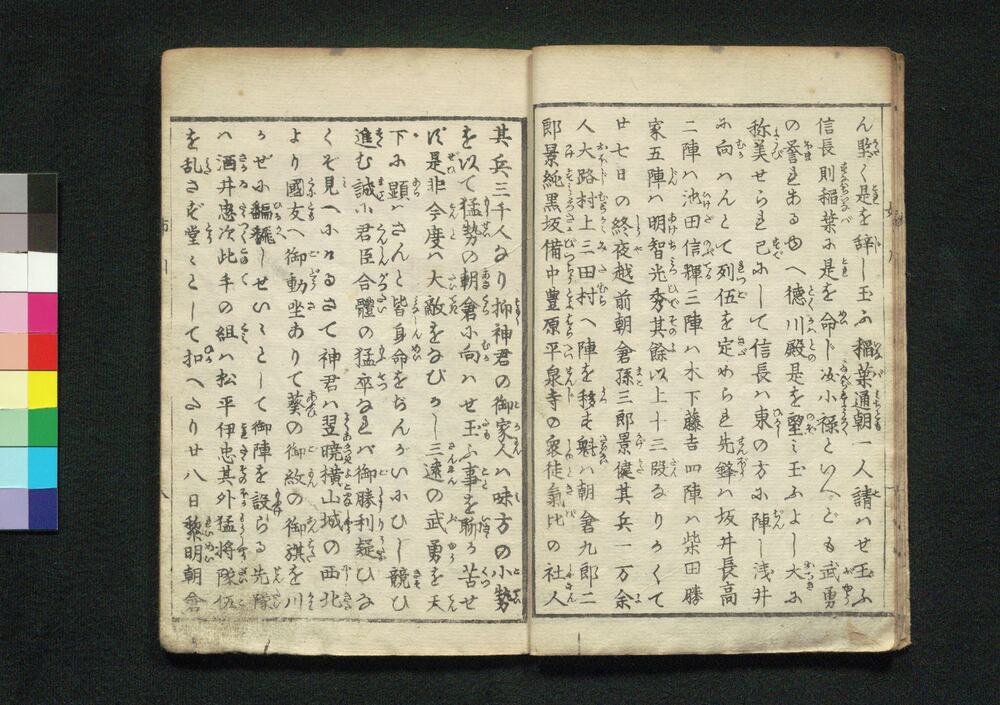 ん堅く是を辞し玉ふ稲葉通朝一人請ハせ玉ふ
信長則稲葉に是を命ド汝小禄といへども武勇
の誉まあるゆへ徳川殿是を望ミ玉ふよし大に
称美せられ已にして信長ハ東の方に陣し浅井
に向ハんとて列伍を定めらる先鋒ハ坂井長高
二陣ハ池田信輝三陣ハ木下藤吉四陣ハ柴田勝
家五陣ハ明智光秀其餘以上十三段なりかくて
廿七日の終夜越前朝倉孫三郎景健其兵一万余
人大路村上三田村へ陣を移す魁ハ朝倉九郎二
郎景純黒坂備中豊原平泉寺の衆徒氣比の社人
其兵三千人なり抑神君の御家人ハ味方の小勢
を以て猛勢の朝倉に向ハせ玉ふ事を聊か苦せ
ず是非今度ハ大敵をなびかし三遠の武勇を天
下に顕ハさんと皆身命をちんがいにひし競ひ
進む誠に君臣合體の猛卒なれバ御勝利疑ひな
くぞ見へにけるさて神君ハ翌暁横山城の西北
より國友へ御動坐ありて葵の御紋の御旗を川
かぜに翩飜しせい〳〵として御陣を設らる先隊
ハ酒井忠次此手の組ハ松平伊忠其外猛将隊伍
を乱さず堂〻として扣へたり廿八日黎明朝倉